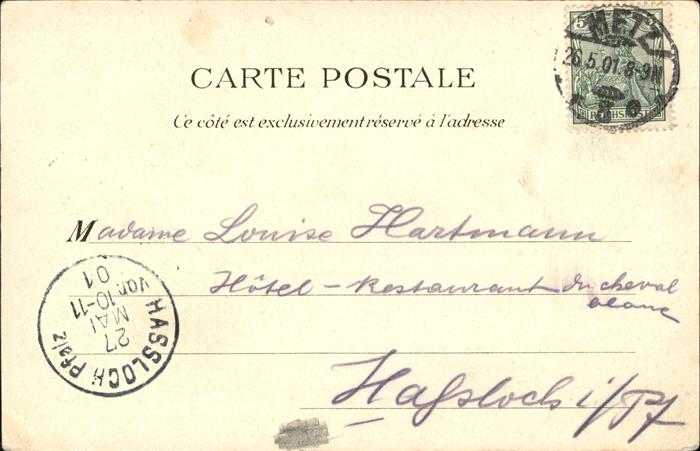 CARTE POSTALE
Ce côté est exclusivement réservé à l'adresse
5 5
REICHSPOST
METZ
26.5.01.8-9N
Madame Louise Hartmann
Hôtel - Restaurant du cheval
blanc
Haßloch i/Pf
HASSLOCH Pfalz
27
MAI
Vor.10-11
01